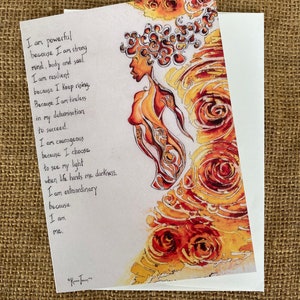 I am powerful
because I am strong
mind, body and soul.
I am resilient
because I keep rising.
Because I am tireless
in my determination
to succeed.
I am courageous
because I choose
to see my light
when life hands me darkness.
I am extraordinary
because
I am
me.